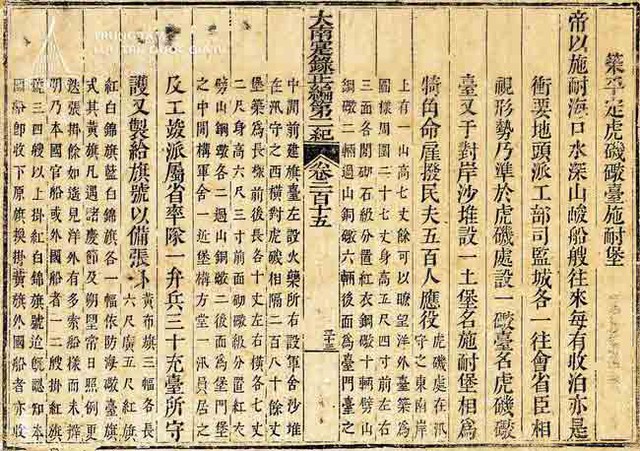 築平定虎磯礮臺施耐堡
帝以施耐海口水深山峻船艘往來每有收泊亦是
衝要地頭派工部司監城各一往會省臣相
視形勢乃準於虎磯處設一礮臺名虎磯礮
臺又于對岸沙堆設一土堡名施耐堡相爲
犄角命雇撥民夫五百人應役
虎磯處在汛
守之東南岸
上有一山高七丈餘可以瞭望洋外臺築爲
圓樣周圍二十七丈身高五尺四寸前左右
三面各開砌石級分置紅衣銅礮十輛劈山
銅礮二輛過山銅礮六輛後面爲臺門臺之
大南寔錄正編第二紀 卷二百十五
三十三
中間前建旗臺左設火藥所右設軍舍沙堆
在汛守之西橫對虎磯相隔二百八十餘丈
堡築爲長樣前後長各十丈左右橫各七丈
二尺身高六尺三寸前面砌礮級分置紅衣
劈山銅礮各二過山銅礮二後面爲堡門堡
之中間構軍舍一近堡構方堂一汛員居之
及工竣派屬省率隊一弁兵三十充臺所守
護又製給旗號以備張卜
黃布旗三幅各長
六尺廣五尺紅旗
紅白錦旗藍白錦旗各一幅依防海礮臺旗
式其黃旗凡遇諸慶節及朔望常日照例更
迭張掛餘如遥見洋外有多索船樣而未辨
明乃本國官船或外國船者一二艘掛紅旗
號三四艘以上掛紅白錦旗號迨既認知本
國船卽收下原旗換掛黃旗外國船者亦收
TRUNG TÂM
LƯU TRỮ QUỐC GIA